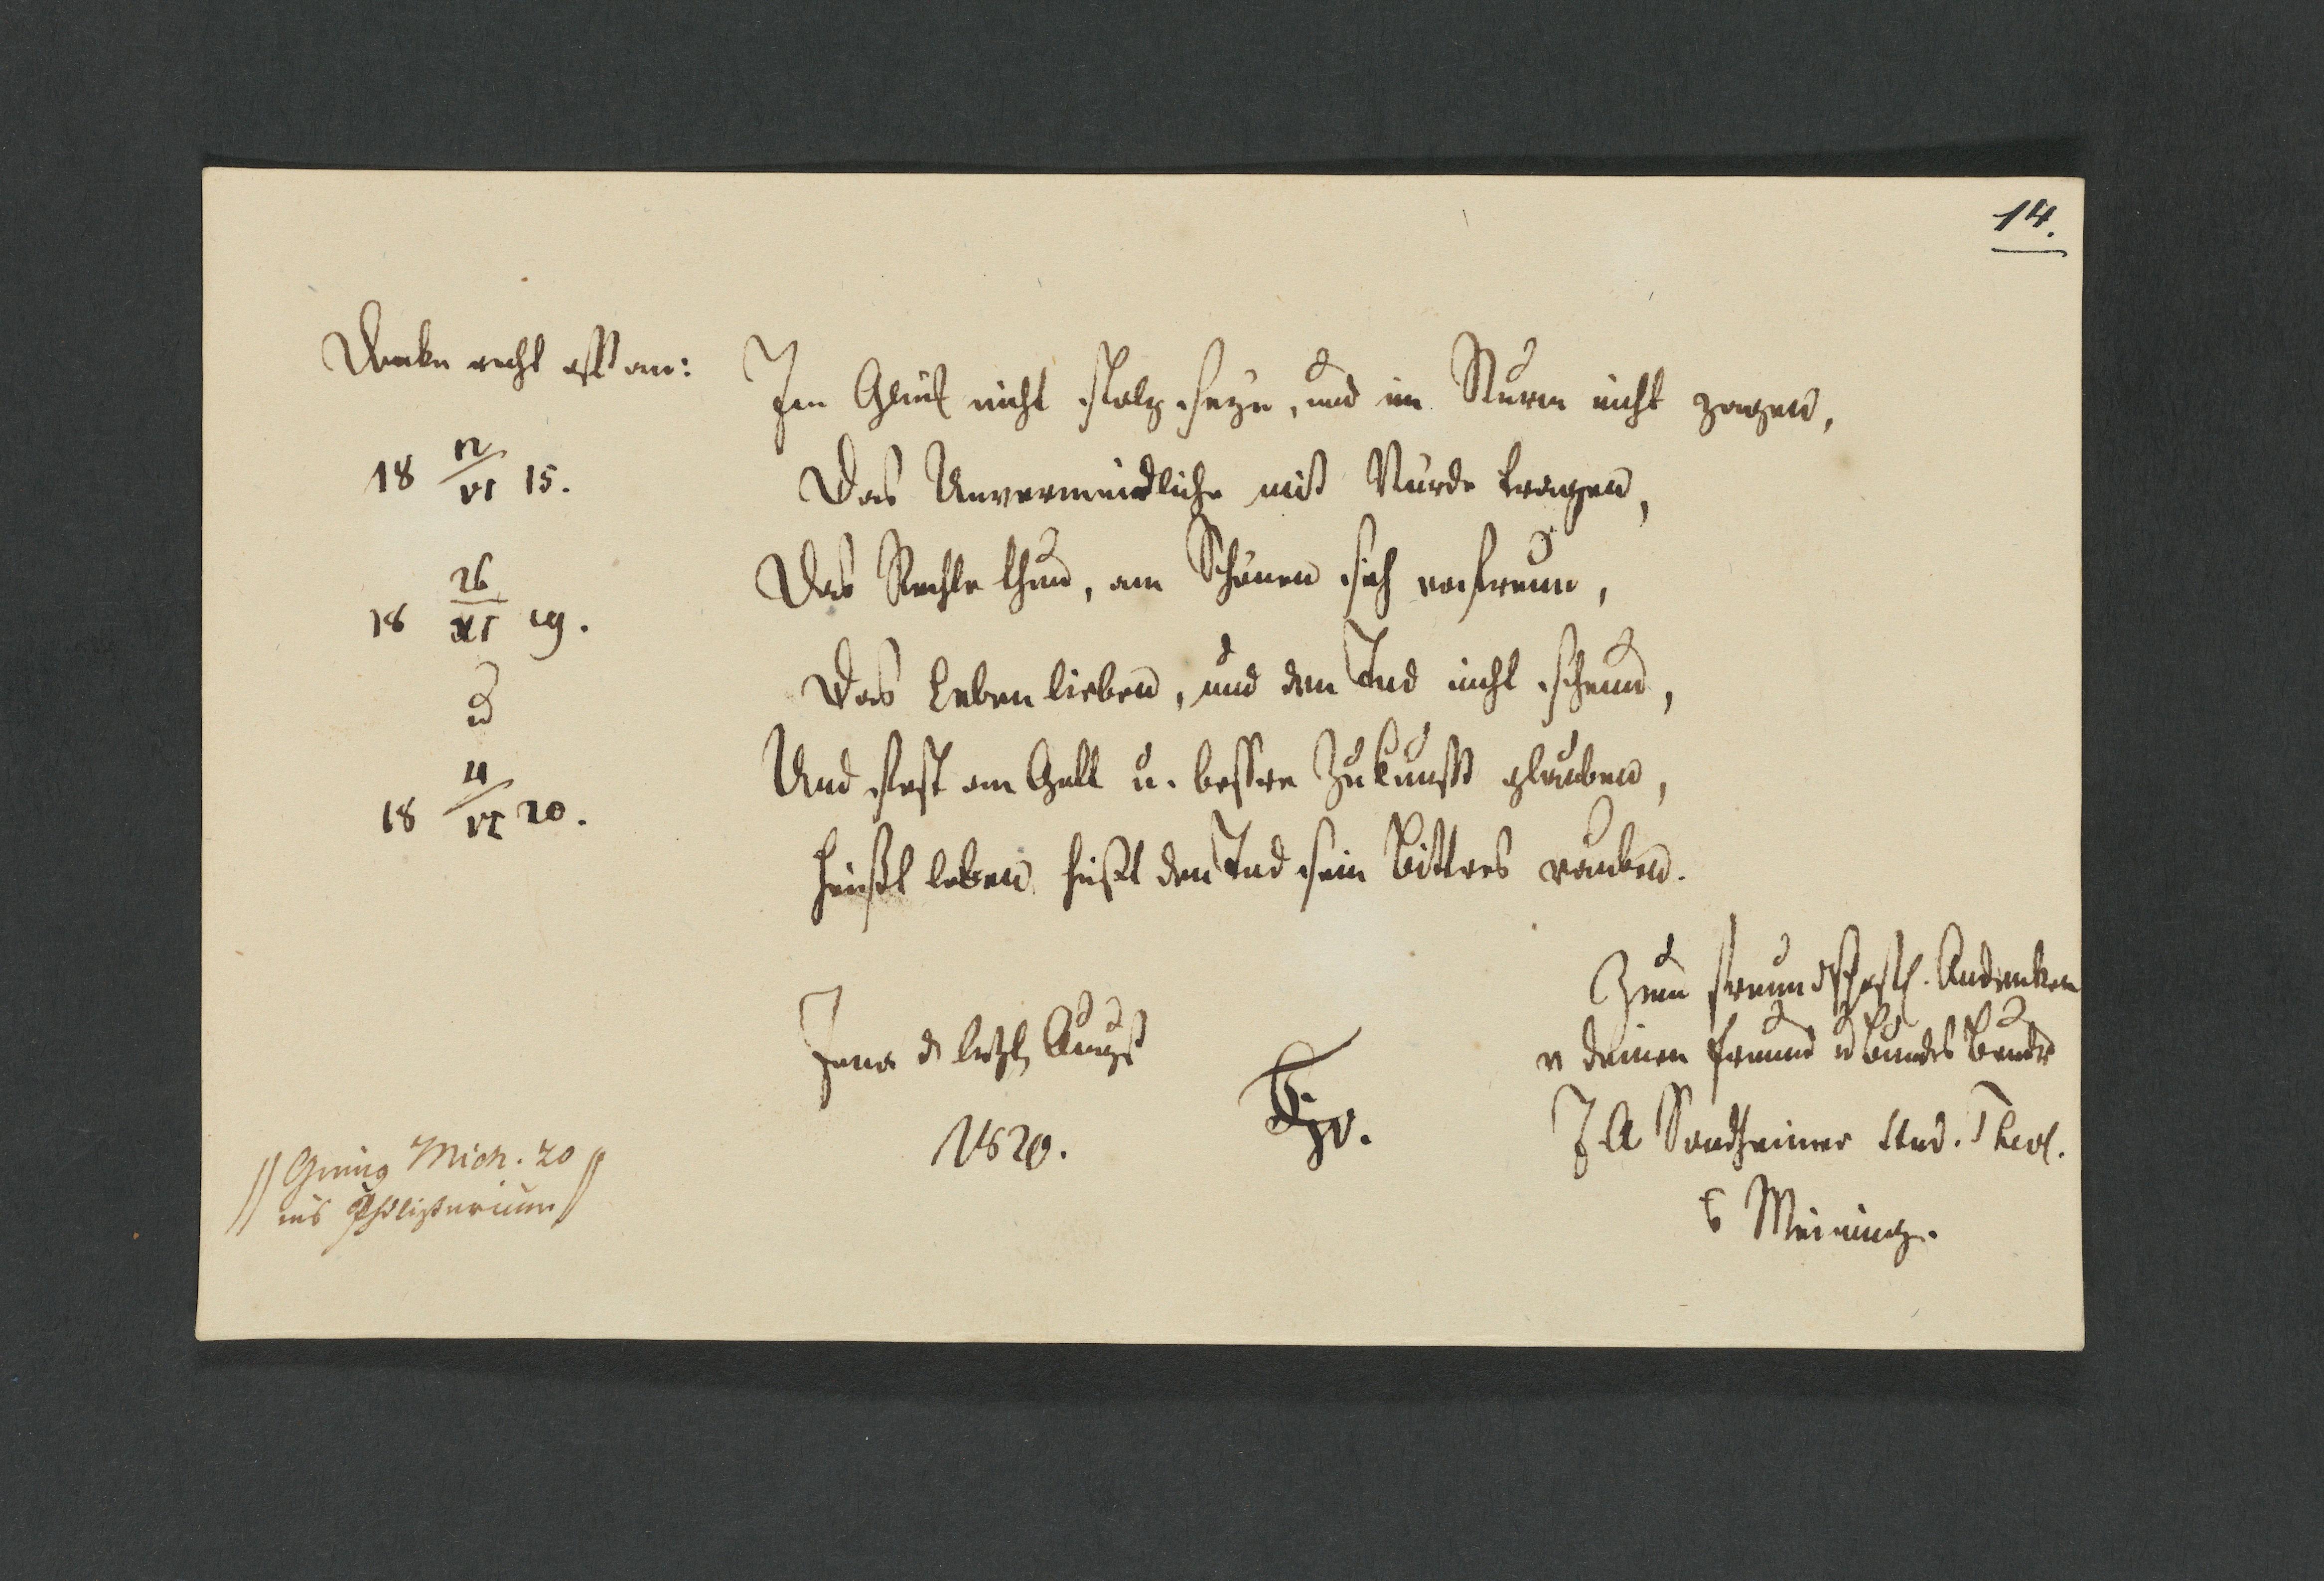 14.
Denke recht oft an:
18 12/VI 15.
18 26/XI 19.
u
18 11/VI 20.
Im Glück nicht stolz seyn, und im Sturm nicht zagen,
Das Unvermeidliche mit Würde tragen,
Das Rechte thun, am Schönen sich erfreun,
Das Leben lieben, und den Tod nicht scheun,
Und fest an Gott u. bessre Zukunft glauben,
heißt leben heißt den Tod sein Bittres rauben.
Jena d letzt August
1820.
Zum freundschaftl. Andenken
v deinen Freund u Bundes Bruder
J A Sondheimer Stud. Theol.
Meining.
Gieng Mich. 20
ins Philisterium